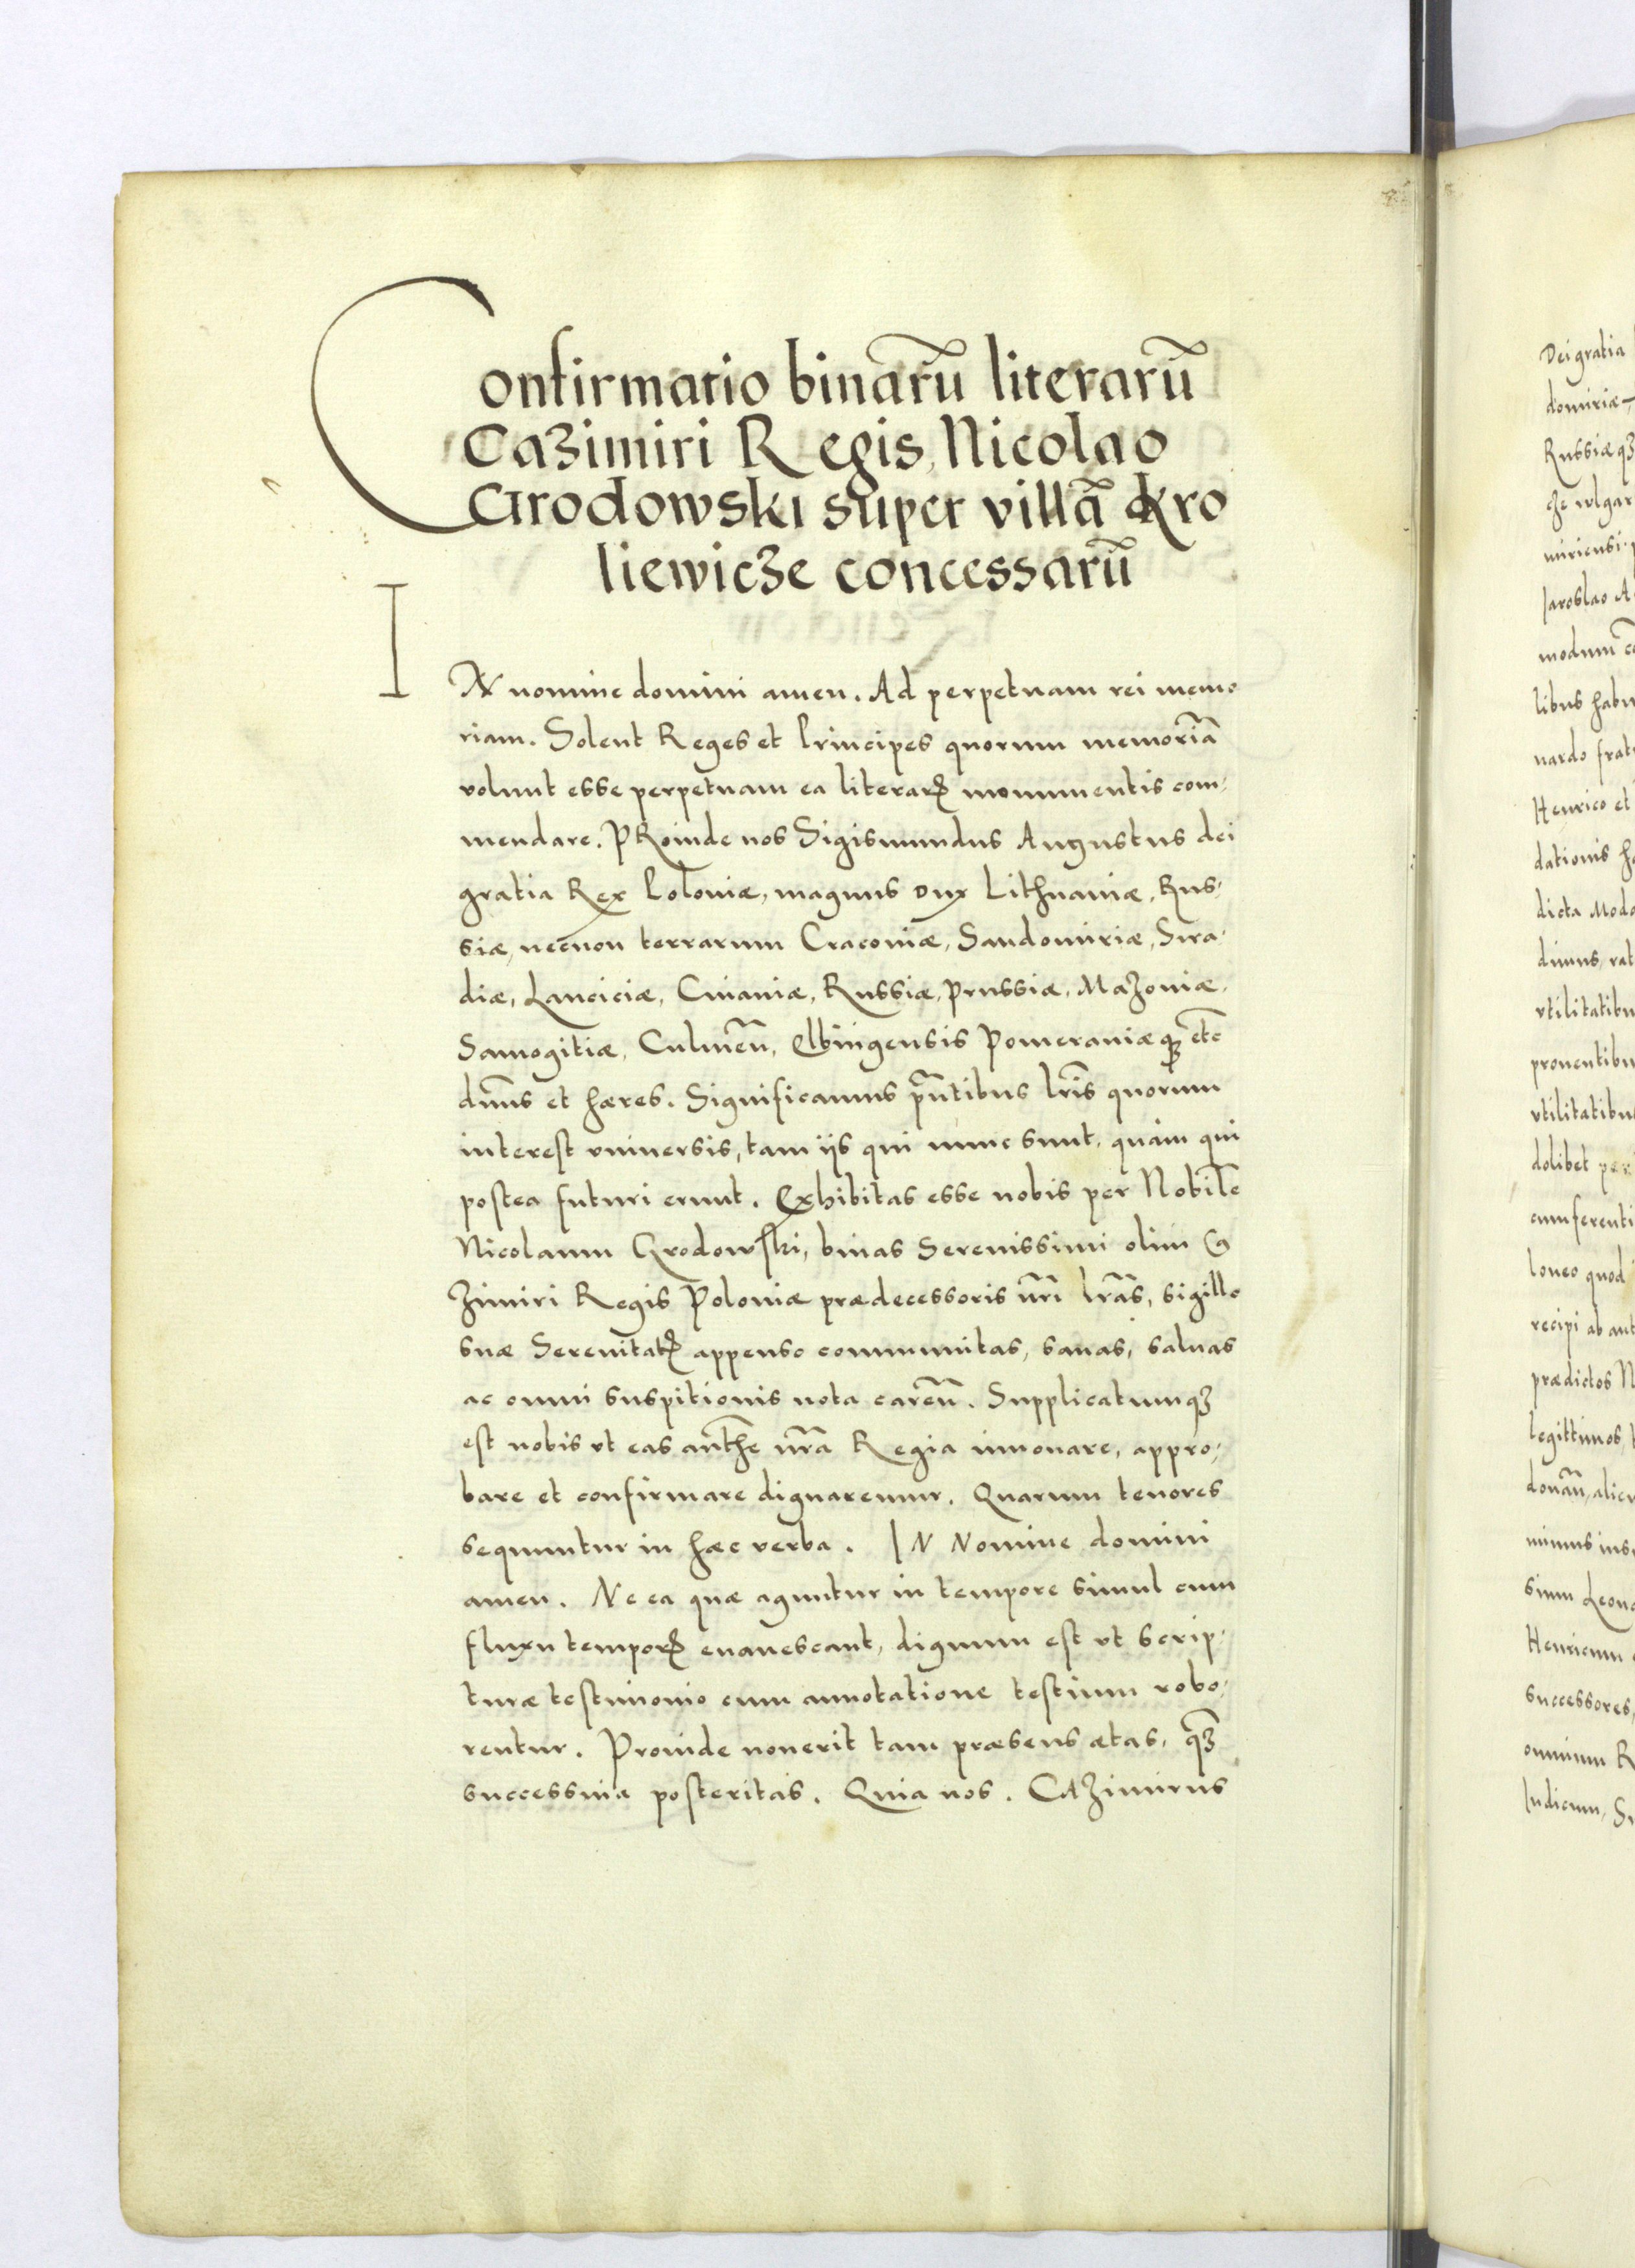 Confirmatio binarũ literarũ
Cazimiri Regis, Nicolao
Grodowski super villã Kro
liewicze concessarũ
IN nomine domini amen. Ad perpetuam rei memo
riam. Solent Reges et Principes quorum memoriã
volunt esse perpetuam ea literarꝝ monumentis com,
mendare. PRoinde nos Sigismundus Augustus dei
gratia Rex Poloniæ, magnus Dux Lithuaniæ, Rus,
siæ, necnon terrarum Cracoviæ, Sandomiriæ, Sira,
diæ, Lanciciæ, Cuiaviæ, Russiæ, Prussiæ, Mazoviæ,
Samogitiæ, Culmeñ, Elbingensis Pomeraniæqꝫ etc̃
dñus et hæres. Significamus p̃ntibus lr̃is quorum
interest universis, tam ijs qui nunc sunt, quàm qui
postea futuri erunt. Exhibitas esse nobis per Nobilẽ
Nicolaum Grodowski, binas Serenissimi olim Ca
zimiri Regis Poloniæ prædecessoris nr̃i lr̃as, sigillo
suæ Serenitatꝭ appenso communitas, sanas, salvas
ac omni suspitionis nota careñ. Supplicatumqꝫ
est nobis vt eas auth̃e nr̃a Regia innovare, appro,
bare et confirmare dignaremur. Quarum tenores
sequuntur in hæc verba. IN Nomine domini
amen. Ne ea quæ aguntur in tempore simul cum
fluxu temporꝭ evanescant, dignum est vt scrip,
turæ testimonio cum annotatione testium robo,
rentur. Proinde noverit tam præsens ætas, qꝫ̃
successiva posteritas. Quia nos. CAzimirus
Dei gratia
domiriæ
Russiæqꝫ
cze vulgar
miriensi
Jaroslao A
modum
libus habu
nardo frat
Henrico et
dationis
dicta Mod
dimus, rat
vtilitatibu
proventibu
vtilitatibu
dolibet per
cumferenti
loneo quod
recipi ab ant
prædictos N
legittimos,
donañ, alie
minus ins
sium Leon
Henricum
successores,
omnium R
Judicum, S